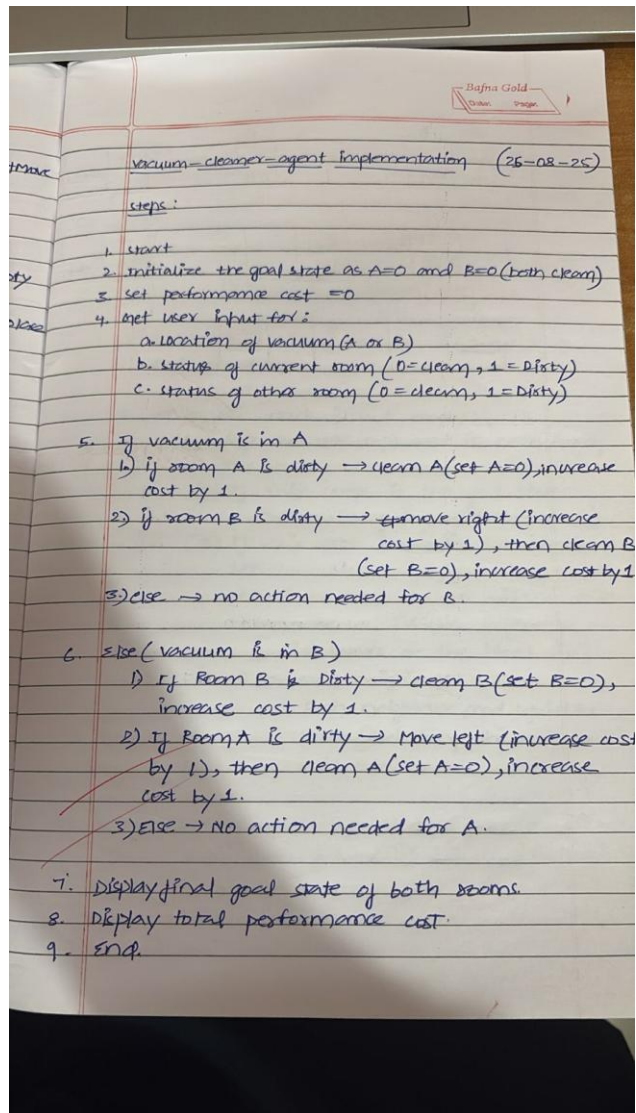 Bafna Gold
Date: Page:
vacuum-cleaner-agent implementation (25-08-25)
steps:
1. start
2. initialize the goal state as A=0 and B=0 (both clean)
3. set performance cost =0
4. Get user input for:
a. Location of vacuum (A or B)
b. status of current room (0=clean, 1=Dirty)
c. status of other room (0=clean, 1=Dirty)
5. If vacuum is in A
1.) if room A is dirty → clean A(set A=0), increase
cost by 1.
2.) if room B is dirty → move right (increase
cost by 1), then clean B
(set B=0), increase cost by 1
3.) else → no action needed for B.
6. Else (vacuum is in B)
1) If Room B is Dirty → clean B(set B=0),
increase cost by 1.
2) If Room A is dirty → Move left (increase cost
by 1), then clean A(set A=0), increase
cost by 1.
3) Else → No action needed for A.
7. Display final goal state of both rooms.
8. Display total performance cost.
9. End.